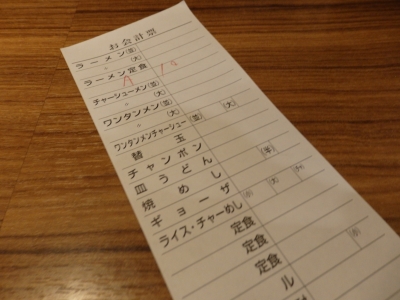 お会計票
ラーメン(並)
〃 (大)
ラーメン定食
チャーシューメン(並)
〃 (大)
ワンタンメン(並)
〃 (大)
ワンタンメンチャーシュー(並) (大)
替玉
チャンポン
皿うどん
焼めし (半)
ギョーザ
ライス・チャーめし (小) (大)
定食
定食
定食 (小)
ル